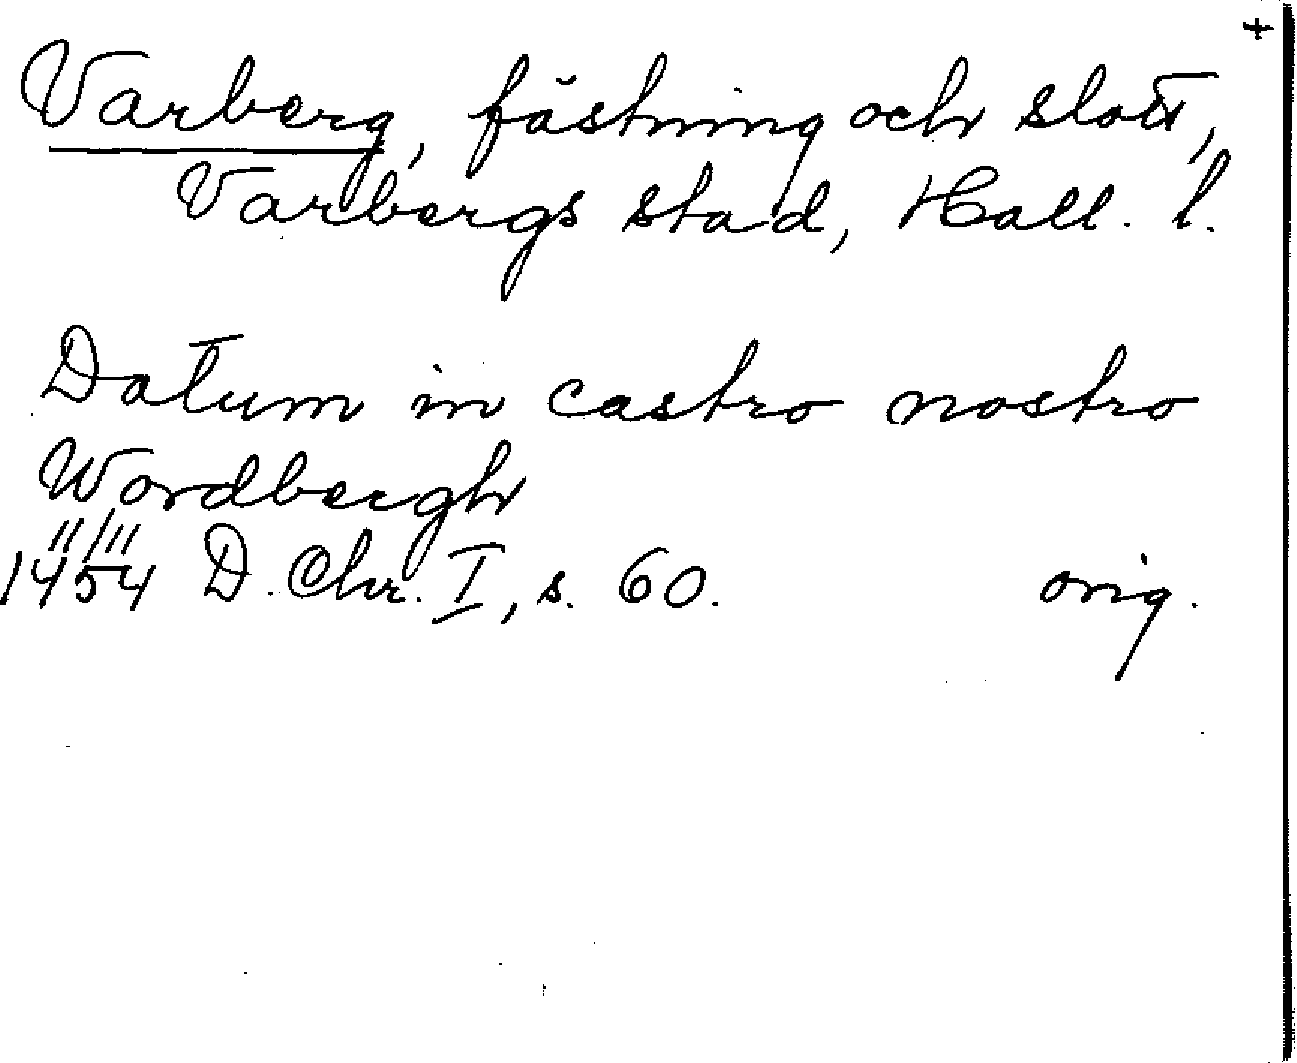 +
Varberg, fästning och slott,
Varbergs stad, Hall. l.
Datum in castro nostro
Wardbergh
11/111
1454 D. Chr. I, s. 60. orig.